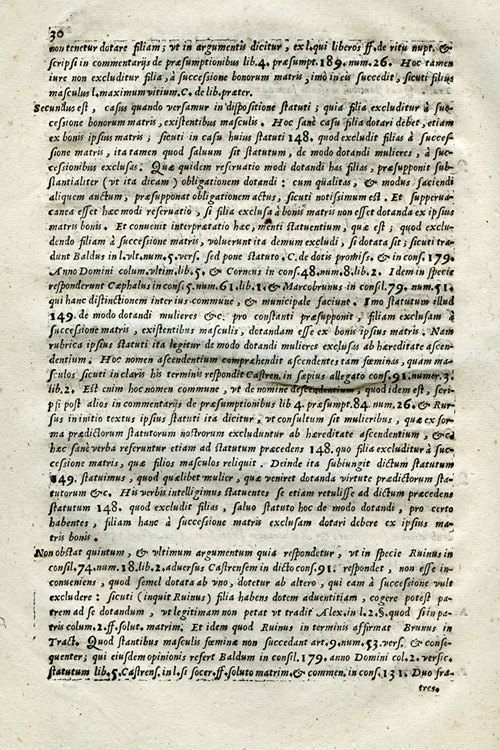 30
non tenetur dotare filiam; vt in argumentis dicitur, ex l. qui liberos ff. de ritu nupt. &
scripsi in commentarijs de præsumptionibus lib. 4. præsumpt. 189. num. 26. Hoc tamen
iure non excluditur filia, à successione bonorum matris, imò in eis succedit, sicuti filius
masculus l. maximum vitium. C. de lib. præter.
Secundus est, casus quando versamur in dispositione statuti; quia filia excluditur à suc-
cessione bonorum matris, existentibus masculis. Hoc sanè casu filia dotari debet, etiam
ex bonis ipsius matris; sicuti in casu huius statuti 148. quod excludit filias à succes-
sione matris, ita tamen quod saluum sit statutum, de modo dotandi mulieres, à suc-
cessionibus exclusas. Quæ quidem reseruatio modi dotandi has filias, præsupponit sub-
stantialiter (vt ita dicam) obligationem dotandi: cum qualitas, & modus faciendi
aliquem auctum, præsupponat obligationem actus, sicuti notissimum est. Et superua-
canea esset hæc modi reseruatio, si filia exclusa à bonis matris non esset dotanda ex ipsius
matris bonis. Et conuenit interprætatio hæc, menti statuentium, quæ est; quod exclu-
dendo filiam à successione matris, voluerunt ita demum excludi, si dotata sit; sicuti tra-
dunt Baldus in l. vlt. num. 5. vers. sed pone statuto. C. de dotis promiss. & in cons. 179.
Anno Domini colum. vltim. lib. 5. & Corneus in cons. 48. num. 8. lib. 2. Idem in specie
responderunt Cæphalus in cons. 5. num. 61. lib. 1. & Marcobrunus in consil. 79. num. 51.
qui hanc distinctionem inter ius commune, & municipale faciunt. Imo statutum illud
149. de modo dotandi mulieres &c. pro constanti præsupponit, filiam exclusam à
successione matris, existentibus masculis, dotandam esse ex bonis ipsius matris. Nam
rubrica ipsius statuti ita legitur de modo dotandi mulieres exclusas ab hæreditate ascen-
dentium. Hoc nomen ascendentium comprehendit ascendentes tam fœminas, quam ma-
sculos sicuti in claris his terminis respondit Castren. in sæpius allegato cons. 91. numer. 3.
lib. 2. Est enim hoc nomen commune, vt de nomine descendentium, quod idem est, scri-
psi post alios in commentarijs de præsumptionibus lib. 4. præsumpt. 84. num. 26. & Rur-
sus in initio textus ipsius statuti ita dicitur, vt consultum sit mulieribus, quæ ex for-
ma prædictorum statutorum nostrorum excluduntur ab hæreditate ascendentium, &c.
hæc sanè verba referuntur etiam ad statutum præcedens 148. quo filia excluditur à suc-
cessione matris, quæ filios masculos reliquit. Deinde ita subiungit dictum statutum
149. statuimus, quod quælibet mulier, quæ veniret dotanda virtute prædictorum sta-
tutorum &c. His verbis intelligimus statuentes se etiam retulisse ad dictum præcedens
statutum 148. quod excludit filias, saluo statuto hoc de modo dotandi, pro certo
habentes, filiam hanc à successione matris exclusam dotari debere ex ipsius ma-
tris bonis.
Non obstat quintum, & vltimum argumentum quia respondetur, vt in specie Ruinus in
consil. 74. num. 18. lib. 2. aduersus Castrensem in dicto cons. 91. respondet, non esse in-
conueniens, quod semel dotata ab vno, dotetur ab altero, qui eam à successione vult
excludere: sicuti (inquit Ruinus) filia habens dotem aduentitiam, cogere potest pa-
trem ad se dotandum, vt legitimam non petat vt tradit Alex. in l. 2. §. quod si in pa-
tris colum. 2. ff. solut. matrim. Et idem quod Ruinus in terminis affirmat Brunus in
Tract. Quod stantibus masculis fœminæ non succedant art. 9. num. 53. vers. & conse-
quenter; qui eiusdem opinionis refert Baldum in consil. 179. anno Domini col. 2. versic.
statutum lib. 5. Castrens. in l. si socer. ff. soluto matrim. & commen. in cons. 131. Duo fra-
tres.